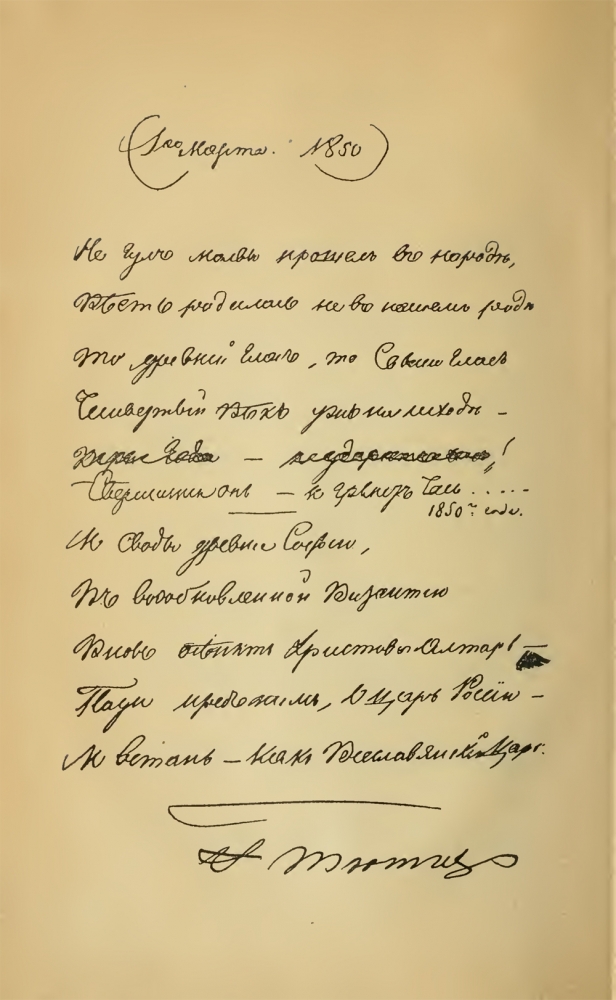 (1го Марта. 1850)
Не гулъ молвы прошелъ въ народѣ,
Вѣсть родилась не въ нашемъ родѣ
То древній гласъ, то Свыше гласъ
Четвертый Вѣкъ ужъ на исходѣ –
Свершится онъ – и грянетъ Часъ .....
1850го года.
И Своды древніе Софіи,
Въ возобновленной Византіи
Вновь осѣнятъ Христовъ Алтарь! –
Пади предъ нимъ, о Царь Россіи –
И встань – какъ Всеславянскій Царь.
Ѳ Тютчевъ